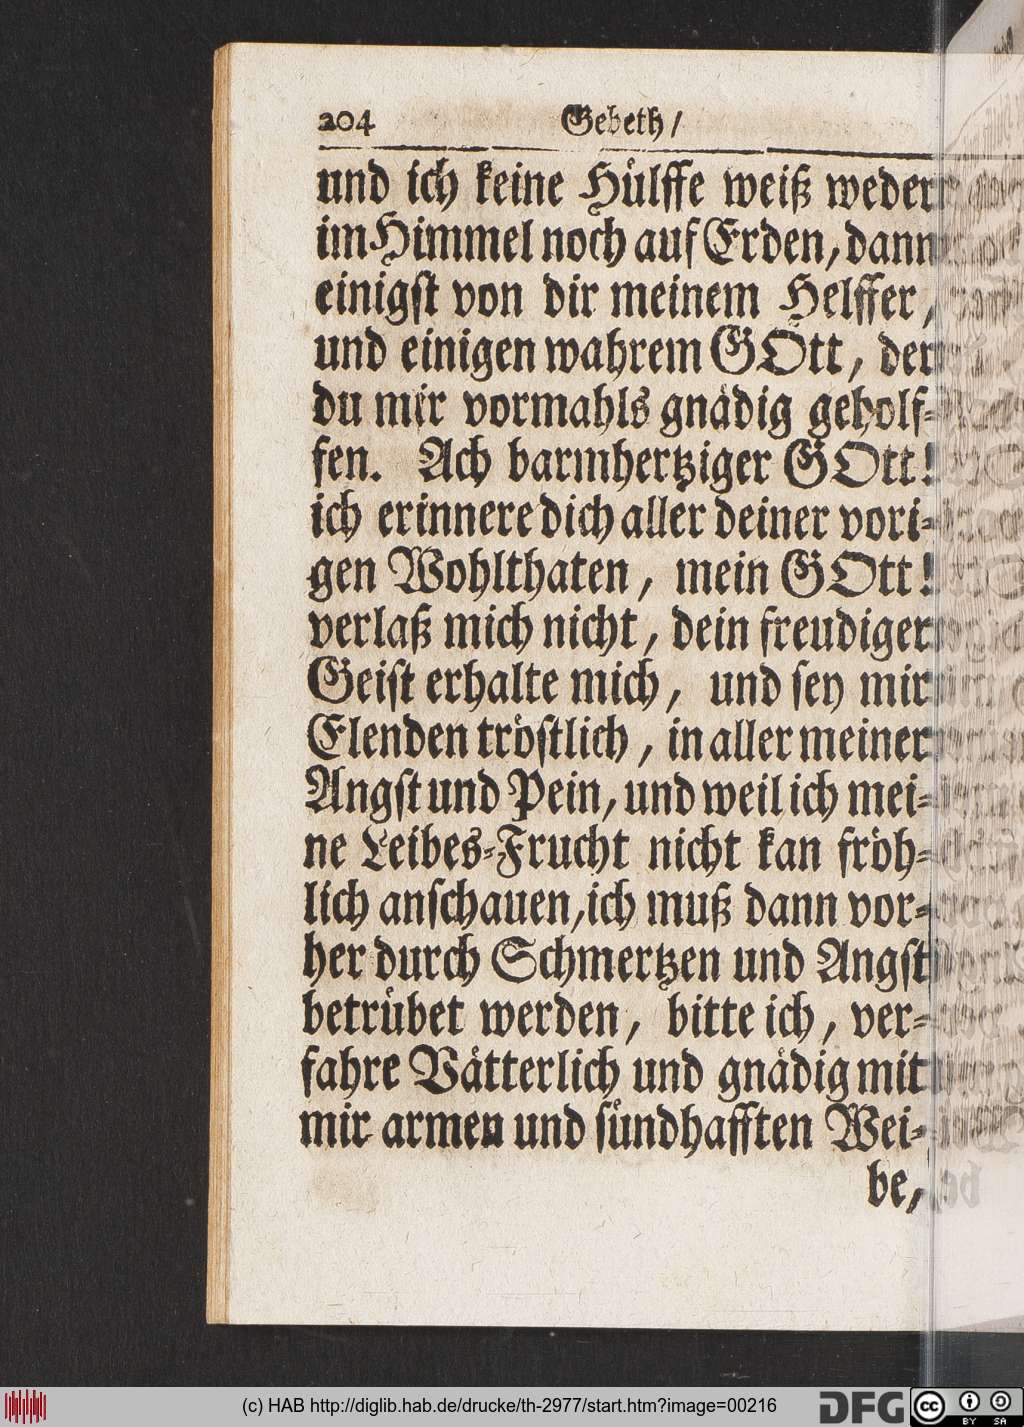 204 Gebeth /
und ich keine Hülffe weiß weder
im Himmel noch auf Erden, dann
einigst von dir meinem Helffer,
und einigen wahrem GOtt, der
du mir vormahls gnädig geholf-
fen. Ach barmhertziger GOtt!
ich erinnere dich aller deiner vori-
gen Wohlthaten, mein GOtt!
verlaß mich nicht, dein freudiger
Geist erhalte mich, und sey mir
Elenden tröstlich, in aller meiner
Angst und Pein, und weil ich mei-
ne Leibes-Frucht nicht kan fröh-
lich anschauen, ich muß dann vor-
her durch Schmertzen und Angst
betrübet werden, bitte ich, ver-
fahre Vätterlich und gnädig mit
mir armen und sündhafften Wei-
be,
(c) HAB http://diglib.hab.de/drucke/th-2977/start.htm?image=00216
DFG
cc BY SA